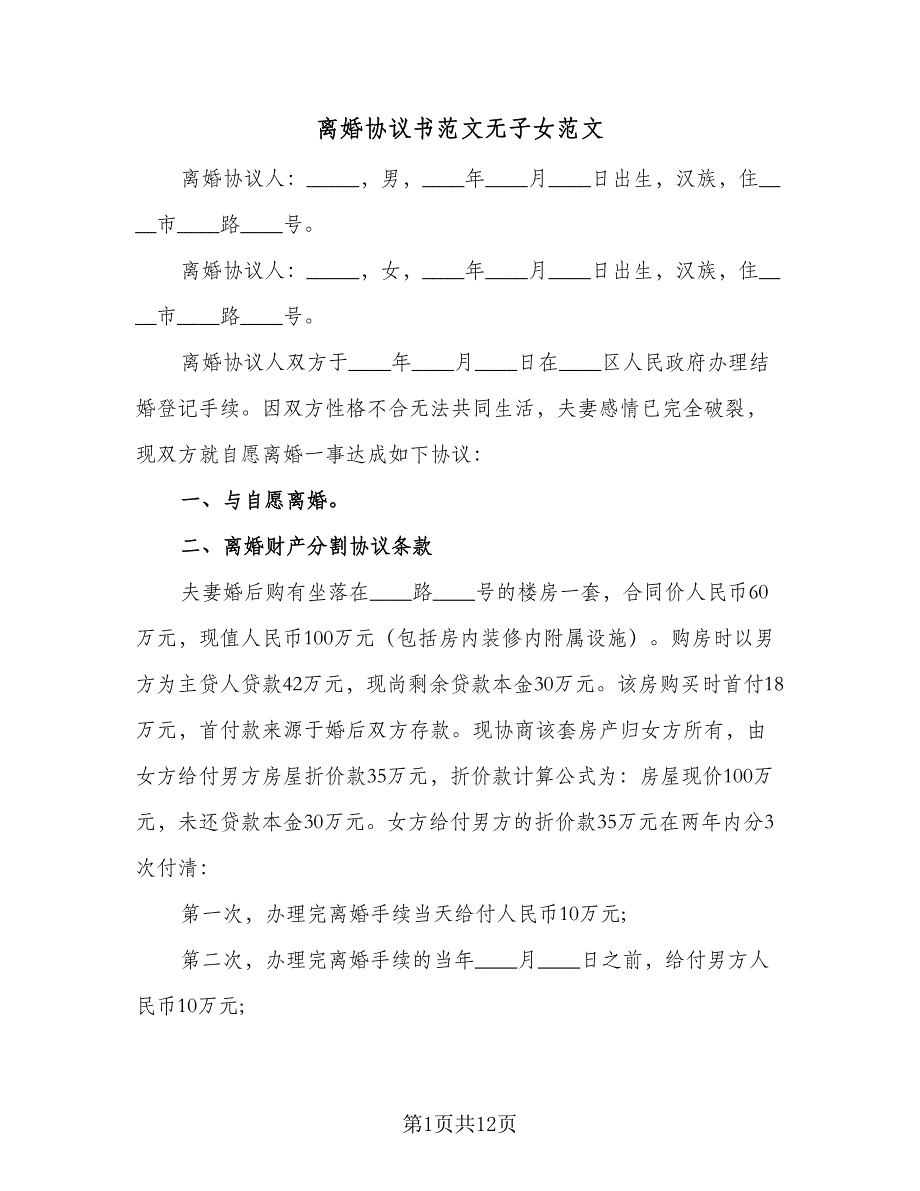 离婚协议书范文无子女范文
离婚协议人：_____，男，____年____月____日出生，汉族，住__
__市____路____号。
离婚协议人：_____，女，____年____月____日出生，汉族，住__
__市____路____号。
离婚协议人双方于____年____月____日在____区人民政府办理结
婚登记手续。因双方性格不合无法共同生活，夫妻感情已完全破裂，
现双方就自愿离婚一事达成如下协议：
一、与自愿离婚。
二、离婚财产分割协议条款
夫妻婚后购有坐落在____路____号的楼房一套，合同价人民币60
万元，现值人民币100万元（包括房内装修内附属设施）。购房时以男
方为主贷人贷款42万元，现尚剩余贷款本金30万元。该房购买时首付18
万元，首付款来源于婚后双方存款。现协商该套房产归女方所有，由
女方给付男方房屋折价款35万元，折价款计算公式为：房屋现价100万
元，未还贷款本金30万元。女方给付男方的折价款35万元在两年内分3
次付清：
第一次，办理完离婚手续当天给付人民币10万元;
第二次，办理完离婚手续的当年____月____日之前，给付男方人
民币10万元;
第1页共12页